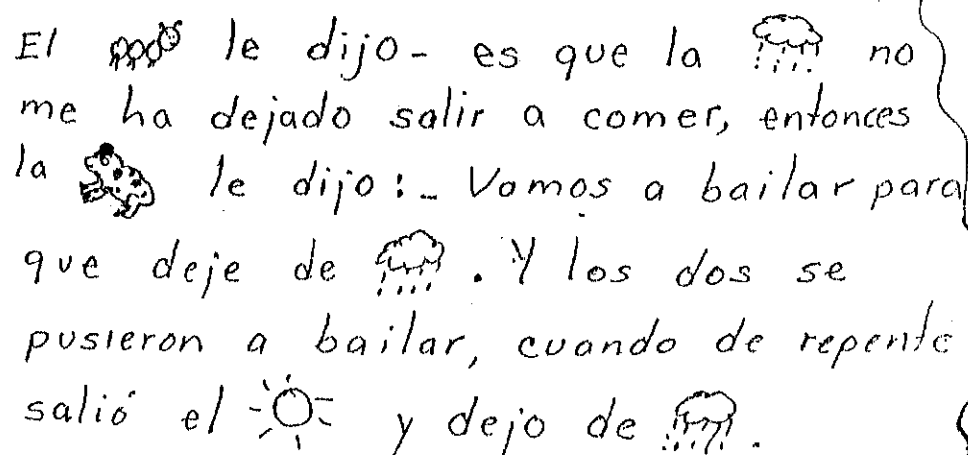 El le dijo- es que la no
me ha dejado salir a comer, entonces
la le dijo:- Vamos a bailar para
que deje de . Y los dos se
pusieron a bailar, cuando de repente
salió el y dejo de .